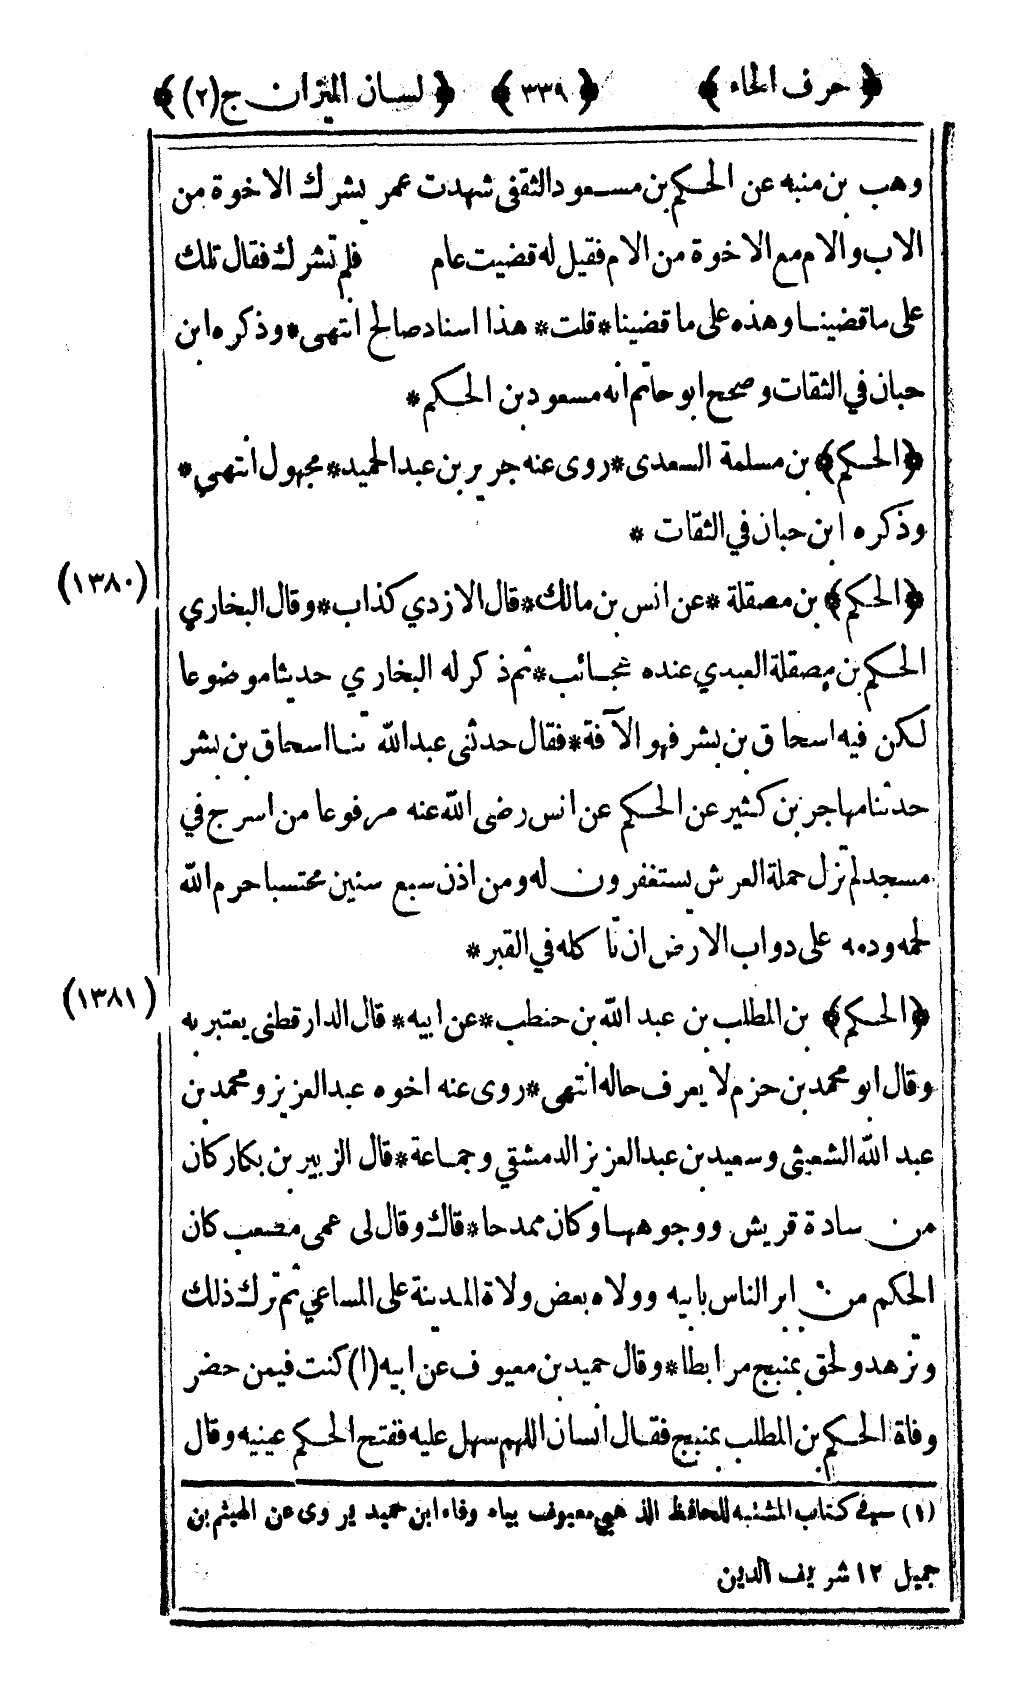 ﴿ حرف الحاء ﴾ ﴿ ٣٣٩ ﴾ ﴿ لسان الميزان ج (٢) ﴾
وهب بن منبه عن الحكم بن مسعود الثقفى شهدت عمر يشرك الاخوة من
الاب والام مع الاخوة من الام فقيل له قضيت عام فلم تشرك فقال تلك
على ما قضينا وهذه على ما قضينا * قلت * هذا اسناد صالح انتهى * وذكره ابن
حبان في الثقات وصحح ابو حاتم انه مسعود بن الحكم *
﴿ الحكم ﴾ بن مسلمة السعدى * روى عنه جرير بن عبد الحميد * مجهول انتهى *
وذكره ابن حبان في الثقات *
(١٣٨٠)
﴿ الحكم ﴾ بن مصقلة * عن انس بن مالك * قال الازدي كذاب * وقال البخاري
الحكم بن مصقلة العبدي عنده عجائب * ثم ذكر له البخاري حديثا موضوعا
لكن فيه اسحاق بن بشر فهو الآفة * فقال حدثنى عبد الله ثنا اسحاق بن بشر
حدثنا مهاجر بن كثير عن الحكم عن انس رضى الله عنه مرفوعا من اسرج في
مسجد لم تزل حملة العرش يستغفرون له ومن اذن سبع سنين محتسبا حرم الله
لحمه ودمه على دواب الارض ان تاكله في القبر *
(١٣٨١)
﴿ الحكم ﴾ بن المطلب بن عبد الله بن حنطب * عن ابيه * قال الدارقطنى يعتبر به
وقال ابو محمد بن حزم لا يعرف حاله انتهى * روى عنه اخوه عبد العزيز ومحمد بن
عبد الله الشعيثى وسعيد بن عبد العزيز الدمشقي وجماعة * قال الزبير بن بكار كان
من سادة قريش ووجوهها وكان ممدحا * قال وقال لى عمى مصعب كان
الحكم من ابر الناس بابيه وولاه بعض ولاة المدينة على المساعي ثم ترك ذلك
وتزهد ولحق بمنبج مرابطا * وقال حميد بن معيوف عن ابيه (١) كنت فيمن حضر
وفاة الحكم بن المطلب بمنبج فقال انسان اللهم سهل عليه ففتح الحكم عينيه وقال
(١) في كتاب المشتبه للحافظ الذهبي معيوف بياء وفاء ابن حميد يروى عن الهيثم بن
جميل ١٢ شريف الدين